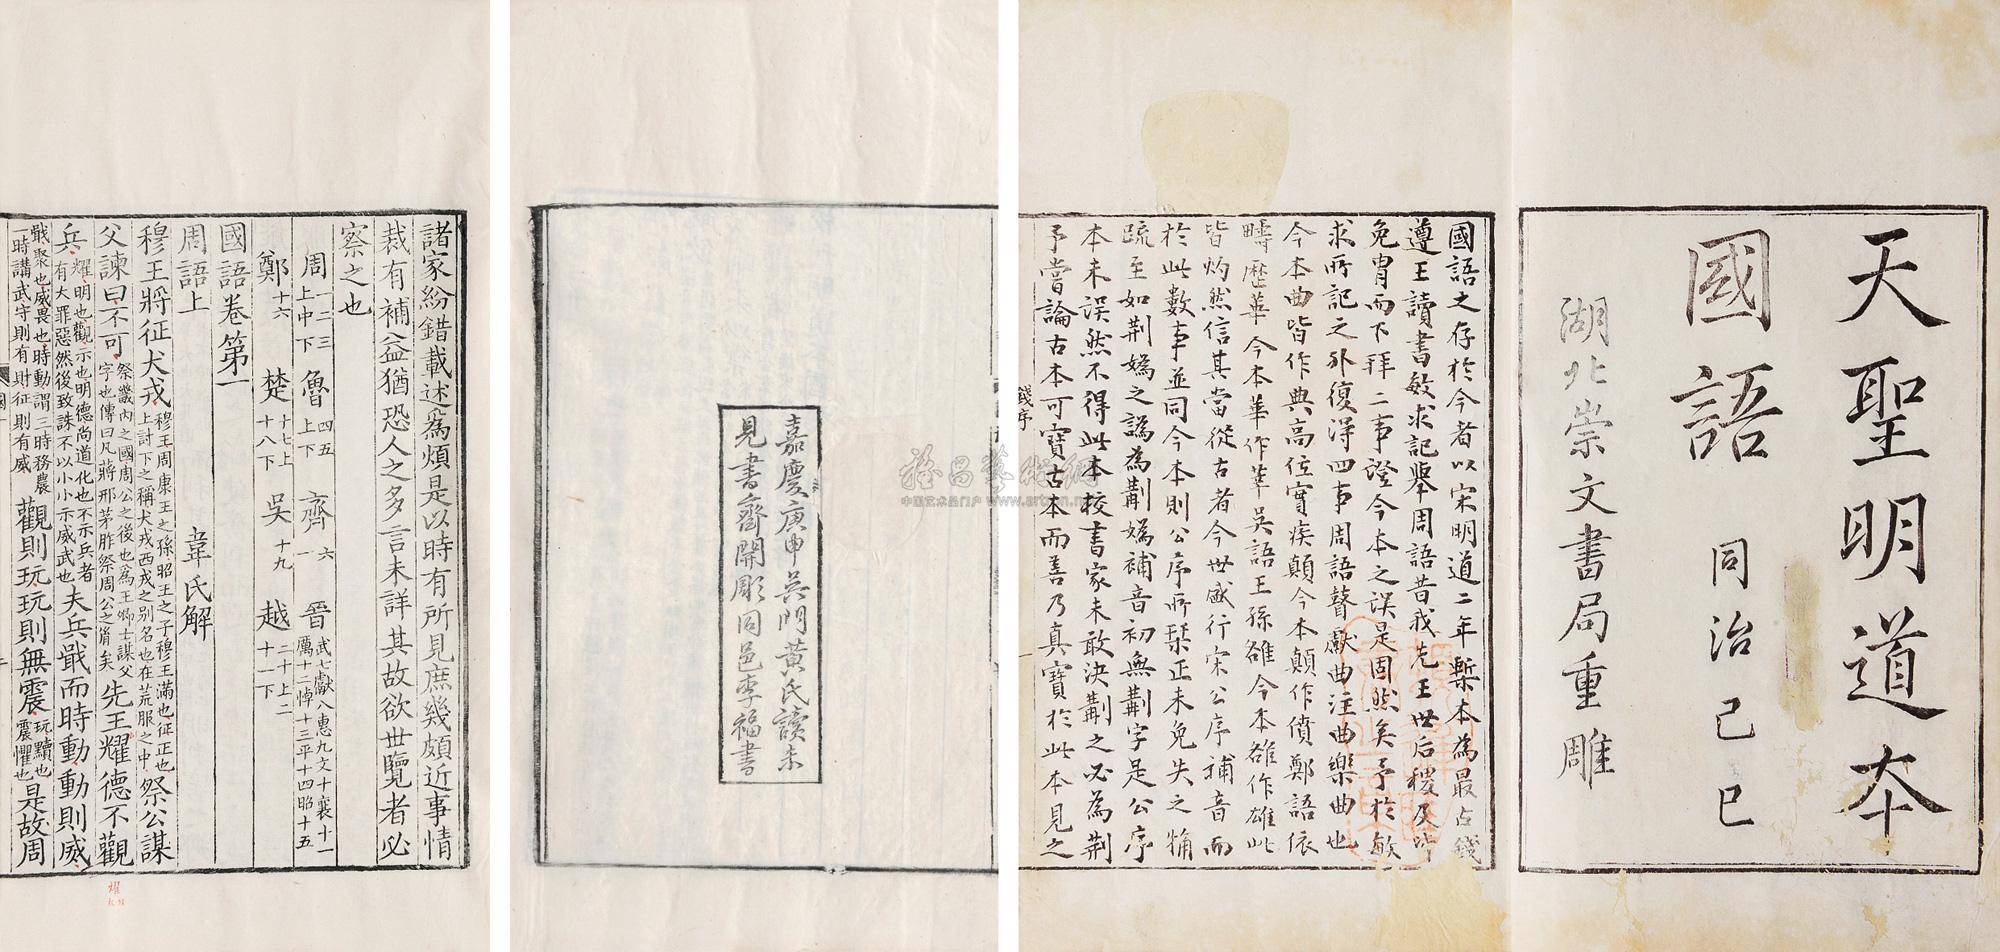 天聖明道本
國語
同治己巳
湖北崇文書局重雕
國語之存於今者以宋明道二年槧本為最古錢
遵王讀書敏求記舉周語昔我先王世后稷及皆
免冑而下拜二事證今本之誤是固然矣予於敏
求所記之外復得四事周語瞽獻曲注曲樂曲也
今本曲皆作典高位寔疾顛今本顛作僨鄭語依
疇歷華今本華作莘吳語王孫雒今本雒作雄此
皆灼然信其當從古者今世盛行宋公序補音而
於此數事並同今本則公序所栞正未免失之觕
疏至如荆嬀之譌為葪嬀補音初無葪字是公序
本未誤然不得此本校書家未敢決葪之必為荆
予嘗論古本可寶古本而善乃真寶於此本見之
錢序
一
嘉慶庚申吳門黃氏讀未
見書齋開彫同邑李福書
諸家紛錯載述為煩是以時有所見庶幾頗近事情
裁有補益猶恐人之多言未詳其故欲世覽者必
察之也
周 一二三 上中下 魯 四五 上下 齊 六 一 晉 武七獻八惠九文十襄十一 厲十二悼十三平十四昭十五
鄭 十六 楚 十七上 十八下 吳 十九 越 二十上二 十一下
國語卷第一
周語上
韋氏解
穆王將征犬戎 穆王周康王之孫昭王之子穆王滿也征正也 上討下之稱犬戎西戎之别名也在荒服之中 祭公謀
父諫曰不可 祭畿內之國周公之後也為王卿士謀父 字也傳曰凡蔣邢茅胙祭周公之胤矣 先王耀德不觀
兵 耀明也觀示也明德尚道化也不示兵者 有大罪惡然後致誅不以小小示威武也 夫兵戢而時動動則威
戢聚也威畏也時動謂三時務農 一時講武守則有財征則有威 觀則玩玩則無震 玩黷也 震懼也 是故周
雅昌藝術網
中国艺术品门户 www.artron.net